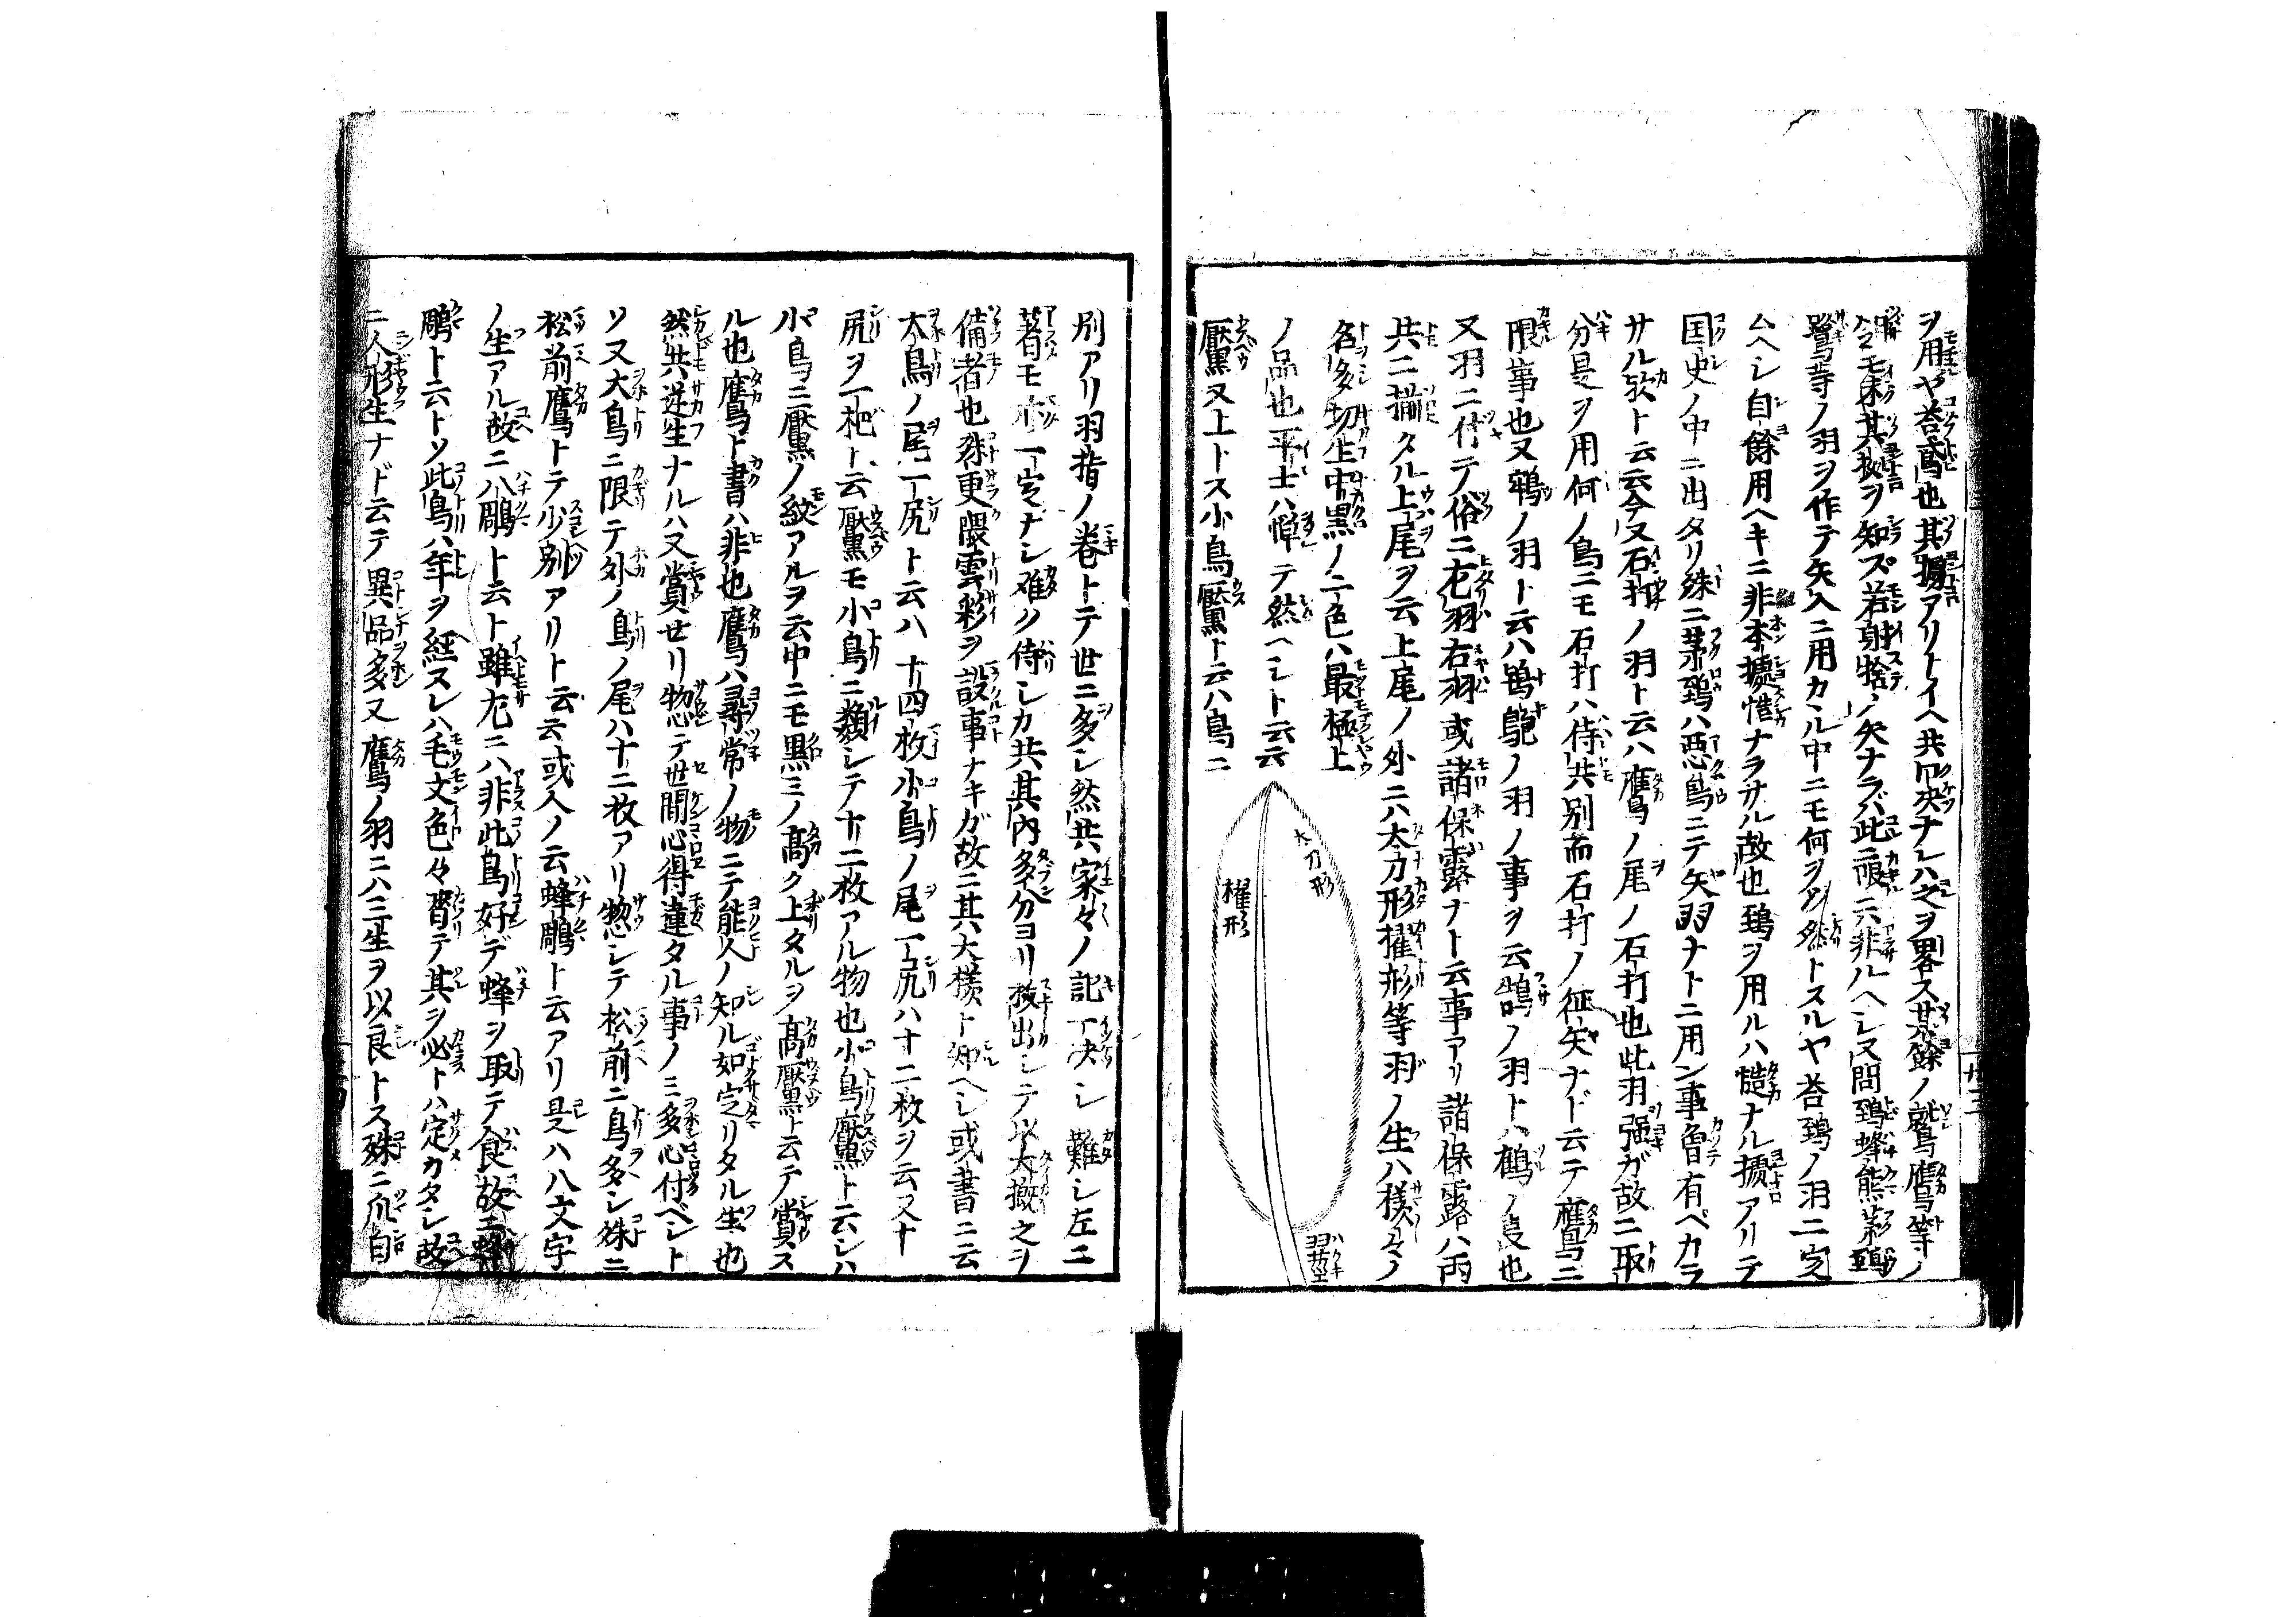 ヲ用ヤ答鳶也其拠アリトイヘ共口决ナレハ之ヲ畧ス其餘ノ鷲鷹等ノ
モ未其故ヲ知ズ若射捨ノ矢ナラバ此ニ限ニ非ルヘシ又問鵄蜂熊茅鵄
鷺等ノ羽ヲ作テ矢入ニ用カミル中ニモ何ヲ トスルヤ答鵄ノ羽ニ定
ムヘシ自餘用ヘキニ非本據慥ナラサル故也鵄ヲ用ルハ慥ナル據アリテ
国史ノ中ニ出タリ殊ニ茅鵄ハ悪鳥ニテ矢羽ナトニ用ン事曽有ベカラ
サル欤ト云云今又石打ノ羽ト云ハ鷹ノ尾ノ石打也此羽强ガ故ニ取
分是ヲ用何ノ鳥ニモ石打ハ侍共別而石打ノ征矢ナド云テ鷹ニ
限事也又鵜ノ羽ト云ハ ノ羽ノ事ヲ云鵠ノ羽トハ鶴ノ 也
又羽ニ付テ俗ニ左羽右羽或諸保露ナト云事アリ諸保露ハ両
共ニ揃タル上尾ヲ云上尾ノ外ニハ太刀形櫂形等羽ノ生ハ様々ノ
名多切生中黒ノ二色ハ最極上
ノ品也平士ハ憚テ然ヘシト云云
黶又上トス小鳥黶ト云ハ鳥ニ
太刀形
櫂形
羽茎
別アリ羽指ノ巻トテ世ニ多シ然共家々ノ記一决シ難シ左ニ
著モ 一定ナシ难ク侍シカ共其内多分ヨリ抜出シテ以大概之ヲ
備者也殊更隈雲彩ヲ設事ナキガ故ニ其大様ト知ヘシ或書ニ云
大鳥ノ尾一尻ト云ハ十四枚小鳥ノ尾一尻ハ十二枚ヲ云又十
尻ヲ一把ト云黶モ小鳥ニ類シテ十二枚アル物也小鳥黶ト云シハ
小鳥ニ黶ノ紋アルヲ云中ニモ黒ミノ高ク上タルヲ高黶ト云テ賞ス
ル也鷹ト書ハ非也鷹ハ尋常ノ物ニテ能人ノ知ル如定リタル生也
然共逆生ナルハ又賞せリ物惣テ世間心得違タル事ノミ多心付ベシト
ソ又大鳥ニ限テ外ノ鳥ノ尾ハ十二枚アリ惣シテ松前ニ鳥多シ殊ニ
松前鷹トテ少別アリト云云或人ノ云蜂鵰ト云アリ是ハ八文字
ノ生アル故ニ八鵰ト云ト雖左ニハ非此鳥好デ蜂ヲ取テ食故ニ蜂
鵰ト云トソ此鳥ハ年ヲ経スレハ毛文色々 テ其ヲ必トハ定カタシ故
ニ人形生ナド云テ異品多又鷹ノ羽ニハ三生ヲ以良トス殊ニ爪白